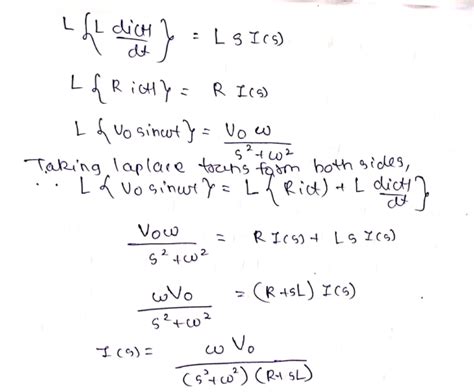 L{L di(t)/dt} = L s I(s)
L{R i(t)} = R I(s)
L{V₀ sinωt} = V₀ ω / s² + ω²
Taking laplace trans form both sides,
∴ L{V₀ sinωt} = L{R i(t) + L di(t)/dt}
V₀ω / s² + ω² = R I(s) + L s I(s)
ωV₀ / s² + ω² = (R + sL) I(s)
I(s) = ω V₀ / (s² + ω²) (R + sL)